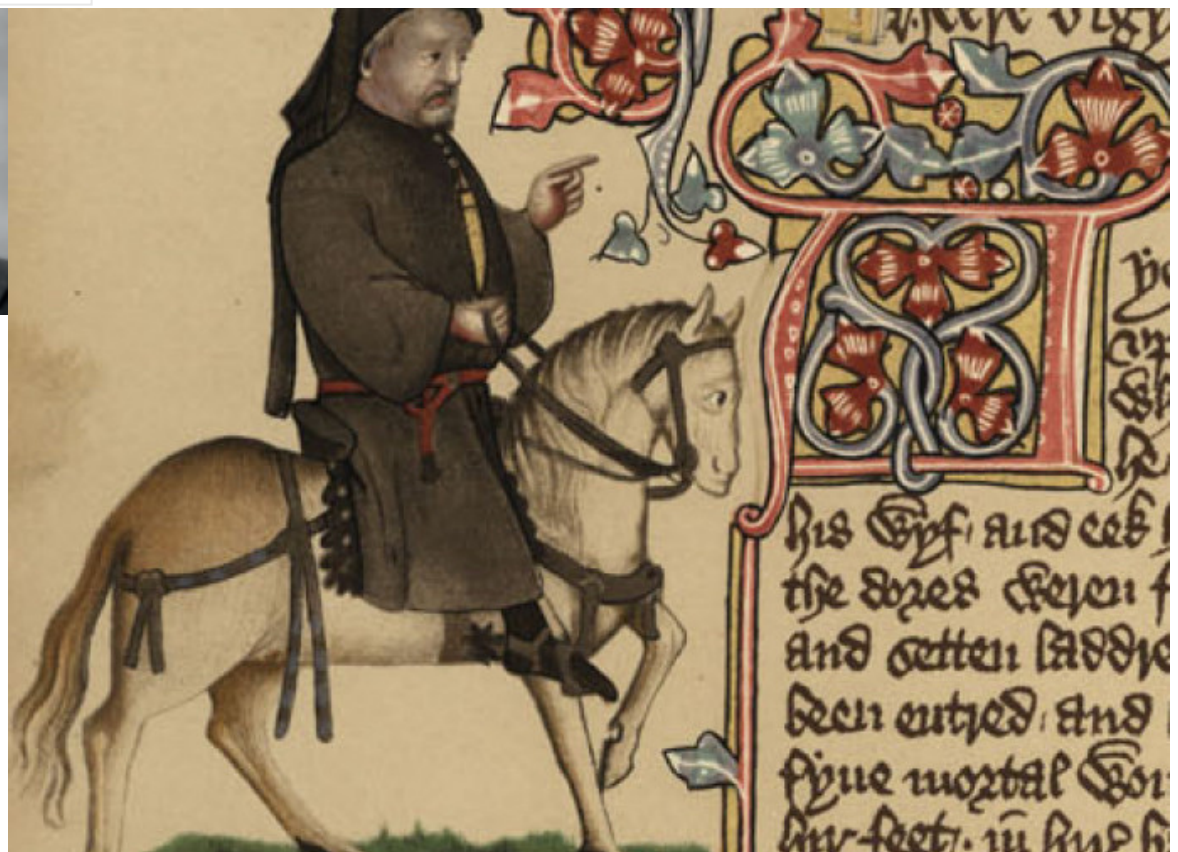 Heere bigy
his Wyf· and eek
the dores weren f
and setten laddre
been entred· and
fyue mortal Wou
hir feet· in hire h